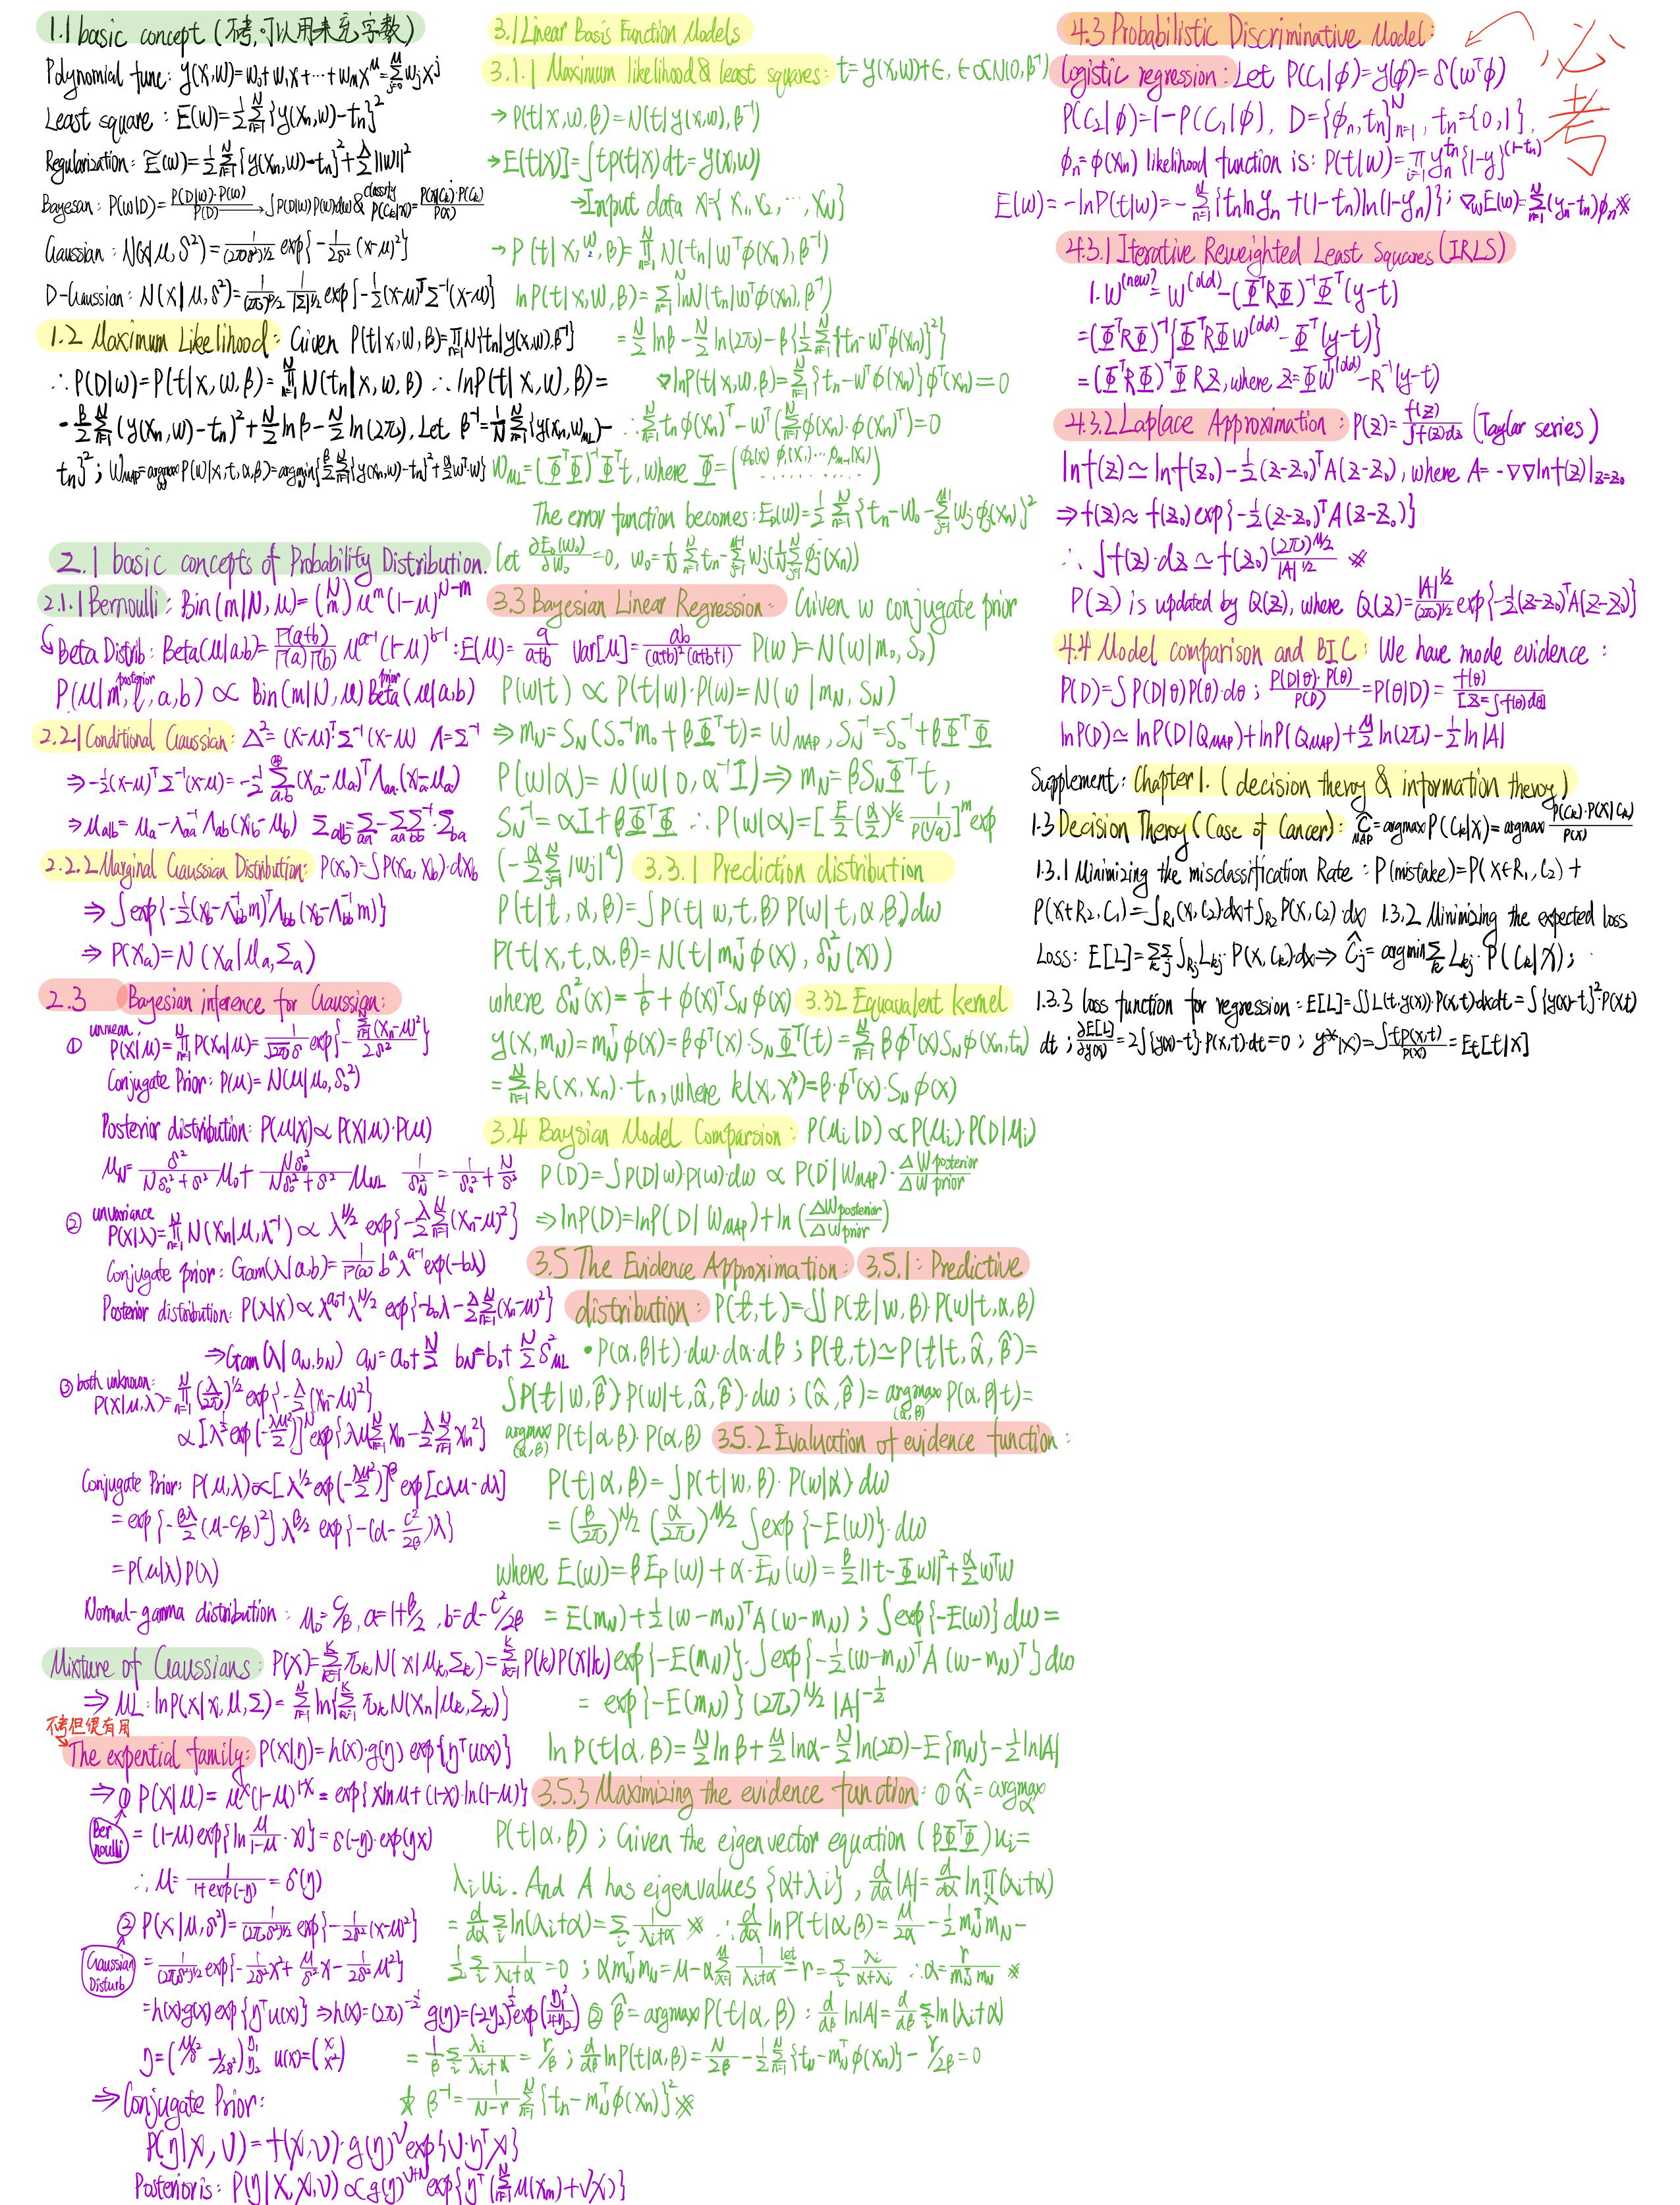 1.1 basic concept (不考,可以用来充字数)
Polynomial func: y(x,w)=w₀+w₁x+⋯+w_M x^M=Σ_{j=0}^{M} w_j x^j
Least square : E(w)=½Σ_{n=1}^{N}{y(x_n,w)-t_n}²
Regularization: Ẽ(w)=½Σ_{n=1}^{N}{y(x_n,w)-t_n}²+λ/2||w||²
Bayesan: P(w|D)=P(D|w)·P(w)/P(D) → ∫P(D|w)P(w)dw & classify P(C_k|x)=P(x|C_k)·P(C_k)/P(x)
Gaussian : N(x|μ,δ²)=1/(2πδ²)^{1/2} exp{-1/2δ² (x-μ)²}
D-Gaussian: N(x|μ,δ²)=1/(2π)^{D/2} 1/|Σ|^{1/2} exp{-½(x-μ)ᵀΣ⁻¹(x-μ)}
1.2 Maximum Likelihood: Given P(t|x,w,β)=Π_{n=1}N{t_n|y(x,w),β⁻¹}
∴ P(D|w)=P(t|x,w,β)=Π_{n=1}^{N} N(t_n|x,w,β) ∴ lnP(t|x,w,β)=
-β/2 Σ_{n=1}^{N}(y(x_n,w)-t_n)²+N/2 lnβ-N/2 ln(2π), Let β⁻¹=1/N Σ_{n=1}^{N}{y(x_n,w_ML)-
t_n}²; w_MAP=argmax P(w|x,t,α,β)=argmin{β/2 Σ_{n=1}^{N}{y(x_n,w)-t_n}²+α/2 wᵀw}
2.1 basic concepts of Probability Distribution.
2.1.1 Bernoulli: Bin(m|N,μ)=(N m) μ^m(1-μ)^{N-m}
Beta Distrib: Beta(μ|a,b)=Γ(a+b)/Γ(a)Γ(b) μ^{a-1}(1-μ)^{b-1} : E(μ)=a/(a+b) Var[μ]=ab/(a+b)²(a+b+1)
posterior prior
P(μ|m,l,a,b) ∝ Bin(m|N,μ)Beta(μ|a,b)
2.2.1 Conditional Gaussian: Δ²=(x-μ)ᵀΣ⁻¹(x-μ) Λ=Σ⁻¹
⇒ -½(x-μ)ᵀΣ⁻¹(x-μ)=-½Σ_{a,b}(x_a-μ_a)ᵀΛ_aa(x_a-μ_a)
⇒ μ_{a|b}=μ_a-λ_aa⁻¹Λ_ab(x_b-μ_b) Σ_{a|b}=Σ_aa-ΣΣ_bb⁻¹·Σ_ba
2.2.2 Marginal Gaussian Distribution: P(x_a)=∫P(x_a,x_b)·dx_b
⇒ ∫exp{-½(x_b-Λ_bb⁻¹m)ᵀΛ_bb(x_b-Λ_bb⁻¹m)}
⇒ P(x_a)=N(x_a|μ_a,Σ_a)
2.3 Bayesian inference for Gaussian:
① unmean: P(x|μ)=Π_{n=1}^{N}P(x_n|μ)=1/√(2π)δ exp{-Σ_{n=1}(x_n-μ)²/2δ²}
Conjugate Prior: P(μ)=N(μ|μ₀,δ₀²)
Posterior distribution: P(μ|x)∝P(x|μ)·P(μ)
μ_N=δ²/(Nδ₀²+δ²) μ₀+Nδ₀²/(Nδ₀²+δ²) μ_ML 1/δ_N²=1/δ₀²+N/δ²
② unvariance P(x|λ)=Π_{n=1}^{N}N(x_n|μ,λ⁻¹) ∝ λ^{N/2} exp{-λ/2 Σ_{n=1}^{N}(x_n-μ)²}
Conjugate prior: Gam(λ|a,b)=1/Γ(a) b^a λ^{a-1}exp(-bλ)
Posterior distribution: P(λ|x)∝λ^{a₀-1}λ^{N/2} exp{-b₀λ-λ/2 Σ_{n=1}^{N}(x_n-μ)²}
⇒Gam(λ|a_N,b_N) a_N=a₀+N/2 b_N=b₀+N/2 δ²_ML
③ both unknown: P(x|μ,λ)=Π_{n=1}^{N}(λ/2π)^{1/2}exp{-λ/2(x_n-μ)²}
∝[λ^{1/2}exp(-λμ²/2)]^N exp{λμΣ_{n=1}^{N}x_n-λ/2 Σ_{n=1}^{N}x_n²}
Conjugate Prior: P(μ,λ)∝[λ^{1/2}exp(-λμ²/2)]^β exp[cλμ-dλ]
=exp{-βλ/2(μ-c/β)²}λ^{β/2} exp{-(d-c²/2β)λ}
=P(μ|λ)P(λ)
Normal-gamma distribution : μ₀=c/β, a=1+β/2, b=d-c²/2β
Mixture of Gaussians: P(x)=Σ_{k=1}^{K}π_k N(x|μ_k,Σ_k)=Σ_{k=1}^{K}P(k)P(x|k)
⇒ ML: lnP(x|π,μ,Σ)=Σ_{n=1}^{N}ln{Σ_{k=1}^{K}π_k N(x_n|μ_k,Σ_k)}
不考但很有用
The expential family: P(x|η)=h(x)·g(η) exp{ηᵀu(x)}
⇒ ① P(x|μ)=μ^x(1-μ)^{1-x}=exp{xlnμ+(1-x)·ln(1-μ)}
Bernoulli
=(1-μ)exp{ln μ/(1-μ)·x}=δ(-η)·exp(ηx)
∴ μ=1/(1+exp(-η))=δ(η)
② P(x|μ,δ²)=1/(2πδ²)^{1/2} exp{-1/2δ²(x-μ)²}
Gaussian Disturb
=1/(2πδ²)^{1/2}exp{-1/2δ²x²+μ/δ²x-1/2δ²μ²}
=h(x)g(x)exp{ηᵀu(x)} ⇒h(x)=(2π)^{-1/2} g(η)=(-2η₂)^{1/2}exp(η₁²/4η₂)
η=(μ/δ² -1/2δ²) η₁ η₂ u(x)=(x x²)
⇒Conjugate Prior:
P(η|χ,ν)=f(χ,ν)·g(η)^ν exp{ν·ηᵀχ}
Posterior is: P(η|X,χ,ν) ∝g(η)^{ν+N}exp{ηᵀ(Σ_{n=1}^{N}μ(x_n)+νχ)}
3.1 Linear Basis Function Models
3.1.1 Maximum likelihood & least squares: t=y(x,w)+ε, ε∝N(0,β⁻¹)
→ P(t|x,w,β)=N(t|y(x,w),β⁻¹)
→E[t|x]]=∫tp(t|x)dt=y(x,w)
→Input data X={x₁,x₂,⋯,x_N}
→ P(t|x,w,β)=Π_{n=1}^{N}N(t_n|wᵀφ(x_n),β⁻¹)
lnP(t|x,w,β)=Σ_{n=1}^{N}lnN(t_n|wᵀφ(x_n),β⁻¹)
=N/2 lnβ-N/2 ln(2π)-β{½Σ_{n=1}^{N}{t_n-wᵀφ(x_n)}²}
∇lnP(t|x,w,β)=Σ_{n=1}^{N}{t_n-wᵀφ(x_n)}φᵀ(x_n)=0
∴Σ_{n=1}^{N}t_nφ(x_n)ᵀ-wᵀ(Σ_{n=1}^{N}φ(x_n)·φ(x_n)ᵀ)=0
w_ML=(ΦᵀΦ)⁻¹Φᵀt, where Φ=(φ₀(x₁) φ₁(x₁)⋯φ_{m-1}(x₁) ⋯⋯)
The error function becomes: E_D(w)=½Σ_{n=1}^{N}{t_n-w₀-Σ_{j=1}^{M-1}w_jφ_j(x_n)}²
let ∂E_D(w₀)/∂w₀=0, w₀=1/N Σt_n-Σ_{j=1}^{M-1}w_j(1/N Σφ_j(x_n))
3.3 Bayesian Linear Regression: Given w conjugate prior
P(w)=N(w|m₀,S₀)
P(w|t) ∝ P(t|w)·P(w)=N(w|m_N,S_N)
⇒ m_N=S_N(S₀⁻¹m₀+βΦᵀt)=w_MAP, S_N⁻¹=S₀⁻¹+βΦᵀΦ
P(w|α)=N(w|0,α⁻¹I)⇒m_N=βS_NΦᵀt,
S_N⁻¹=αI+βΦᵀΦ ∴P(w|α)=[q/2(α/2)^{1/q} 1/Γ(1/q)]^m exp
(-α/2 Σ_{j=1}^{M}|w_j|^q) 3.3.1 Prediction distribution
P(t|t,α,β)=∫P(t|w,t,β)P(w|t,α,β)dw
P(t|x,t,α,β)=N(t|m_Nᵀφ(x),δ_N²(x))
where δ_N²(x)=1/β+φ(x)ᵀS_Nφ(x) 3.32 Equavalent kernel
y(x,m_N)=m_Nᵀφ(x)=βφᵀ(x)·S_NΦᵀ(t)=Σ_{n=1}^{N}βφᵀ(x)S_Nφ(x_n,t_n)
=Σ_{n=1}^{N}k(x,x_n)·t_n, where k(x,x')=β·φᵀ(x)·S_Nφ(x)
3.4 Baysian Model Comparsion: P(M_i|D)∝P(M_i)·P(D|M_i)
P(D)=∫P(D|w)·P(w)·dw ∝ P(D|W_MAP)·ΔW posterior/ΔW prior
⇒lnP(D)=lnP(D|W_MAP)+ln(ΔW posterior/ΔW prior)
3.5 The Evidence Approximation: 3.5.1: Predictive
distribution: P(t,t)=∬P(t|w,β)·P(w|t,α,β)
•P(α,β|t)·dw·dα·dβ; P(t,t)≃P(t|t,α̂,β̂)=
∫P(t|w,β̂)·P(w|t,α̂,β̂)·dw; (α̂,β̂)=argmax_{(α,β)}P(α,β|t)=
argmax_{(α,β)}P(t|α,β)·P(α,β) 3.5.2 Evaluation of evidence function:
P(t|α,β)=∫P(t|w,β)·P(w|α)dw
=(β/2π)^{N/2}(α/2π)^{M/2}∫exp{-E(w)}·dw
where E(w)=βE_D(w)+α·E_N(w)=β/2||t-Φw||²+α/2wᵀw
=E(m_N)+½(w-m_N)ᵀA(w-m_N); ∫exp{-E(w)}dw=
exp{-E(m_N)}·∫exp{-½(w-m_N)ᵀA(w-m_N)ᵀ}dw
= exp{-E(m_N)}(2π)^{N/2}|A|^{-1/2}
lnP(t|α,β)=N/2 lnβ+M/2 lnα-N/2 ln(2π)-E{m_N}-½ln|A|
3.5.3 Maximizing the evidence function: ① α̂=argmax_α
P(t|α,β); Given the eigenvector equation (βΦᵀΦ)u_i=
λ_iu_i. And A has eigenvalues {α+λ_i}, d/dα|A|=d/dα lnΠ(λ_i+α)
=d/dα Σ_i ln(λ_i+α)=Σ_i 1/(λ_i+α)※ ∴d/dα lnP(t|α,β)=M/2α-½m_Nᵀm_N-
½Σ_i 1/(λ_i+α)=0; αm_Nᵀm_N=M-αΣ1/(λ_i+α) let =r=Σ_i λ_i/(α+λ_i) ∴α=r/m_Nᵀm_N※
② β̂=argmaxP(t|α,β): d/dβ ln|A|=d/dβ Σ_i ln(λ_i+α)
=1/β Σ_i λ_i/(λ_i+α)=r/β; d/dβ lnP(t|α,β)=N/2β-½Σ_{n=1}^{N}{t_n-m_Nᵀφ(x_n)}-r/2β=0
β⁻¹=1/(N-r)Σ_{n=1}^{N}{t_n-m_Nᵀφ(x_n)}²※
4.3 Probabilistic Discriminative Model:
必考
logistic regression: Let P(C₁|φ)=y(φ)=δ(wᵀφ)
P(C₂|φ)=1-P(C₁|φ), D={φ_n,t_n}_{n=1}^{N}, t_n={0,1},
φ_n=φ(x_n) likelihood function is: P(t|w)=Π_{i=1}y_n^{t_n}{1-y}^{(1-t_n)}
E(w)=-lnP(t|w)=-Σ_{n=1}^{N}{t_nlny_n+(1-t_n)ln(1-y_n)}; ∇_wE(w)=Σ_{n=1}^{N}(y_n-t_n)φ_n※
4.3.1 Iterative Reweighted Least Squares (IRLS)
1.w^(new)=w^(old)-(ΦᵀRΦ)⁻¹Φᵀ(y-t)
=(ΦᵀRΦ)⁻¹{ΦᵀRΦw^(old)-Φᵀ(y-t)}
=(ΦᵀRΦ)⁻¹ΦRZ, where Z=Φw^(old)-R⁻¹(y-t)
4.3.2 Laplace Approximation: P(z)=f(z)/∫f(z)·dz (Taylar series)
lnf(z)≃lnf(z₀)-½(z-z₀)ᵀA(z-z₀), where A=-∇∇lnf(z)|_{z=z₀}
⇒f(z)≈f(z₀)exp{-½(z-z₀)ᵀA(z-z₀)}
∴∫f(z)·dz≃f(z₀)(2π)^{M/2}/|A|^{1/2} ※
P(z) is updated by Q(z), where Q(z)=|A|^{1/2}/(2π)^{M/2}exp{-½(z-z₀)ᵀA(z-z₀)}
4.4 Model comparison and BIC: We have mode evidence:
P(D)=∫P(D|θ)P(θ)·dθ; P(D|θ)·P(θ)/P(D)=P(θ|D)=f(θ)/[Z=∫f(θ)dθ]
lnP(D)≃lnP(D|θ_MAP)+lnP(θ_MAP)+M/2 ln(2π)-½ln|A|
Supplement: Chapter 1. (decision theroy & information theroy)
1.3 Decision Theroy (Case of Cancer): Ĉ_MAP=argmaxP(C_k|x)=argmax P(C_k)·P(x|C_k)/P(x)
1.3.1 Minimizing the misclassification Rate : P(mistake)=P(x∈R₁,C₂)+
P(x∈R₂,C₁)=∫_{R₁}(x,C₂)dx+∫_{R₂}P(x,C₂)·dx 1.3.2 Minimizing the expected loss
Loss: E[L]=Σ_kΣ_j∫_{Rj}L_kj·P(x,C_k)·dx⇒Ĉ_j=argminΣ_k L_kj·P(C_k|x);
1.3.3 loss function for regression: E[L]=∬L(t,y(x))·P(x,t)dxdt=∫{y(x)-t}²·P(x,t)
dt; ∂E[L]/∂y(x)=2∫{y(x)-t}·P(x,t)·dt=0; y*(x)=∫tP(x,t)/P(x)=E_t[t|x]